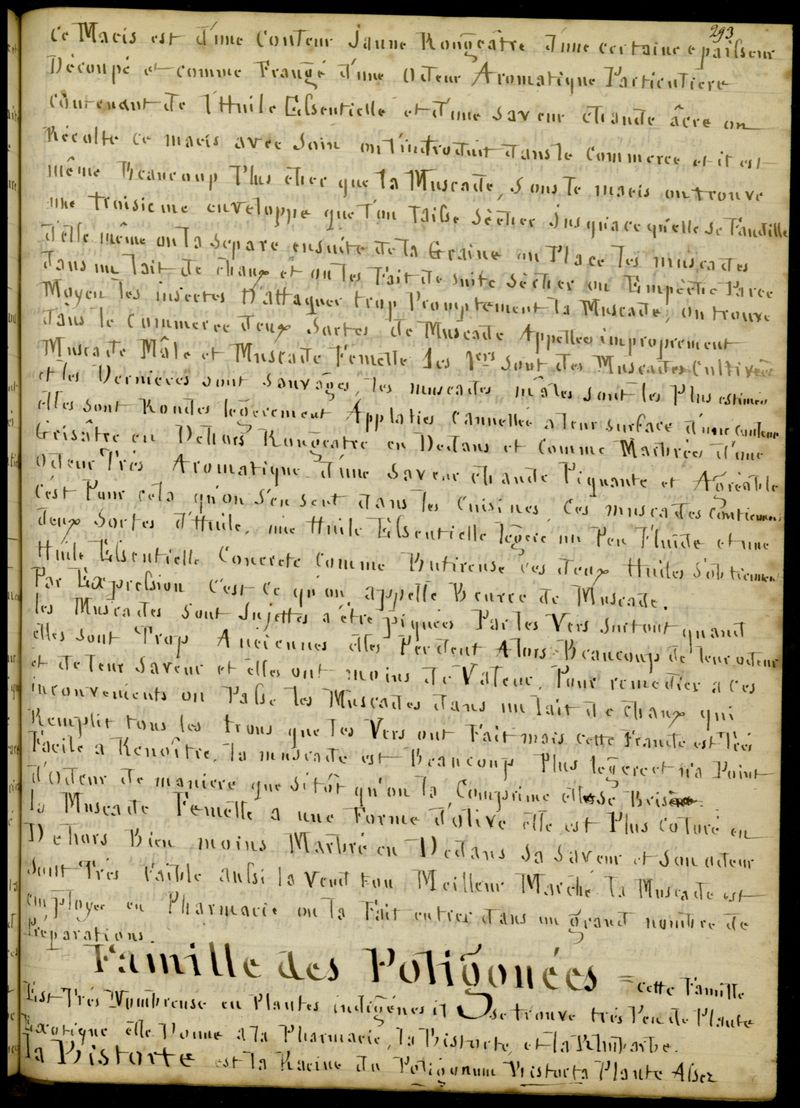 293
Ce Macis est d'une Couleur Jaune Rougeâtre d'une certaine epaisseur
Découpé et comme Frangé d'une Odeur Aromatique Particuliere
Contenant de l'Huile Essentielle et d'une saveur chaude âcre on
Récolte ce macis avec soin on l'introduit dans le Commerce et il est
même Beaucoup Plus cher que la Muscade, sous le macis on trouve
une troisieme enveloppe que l'on laisse sècher jusqu'a ce qu'elle se Fandille
d'elle même on la separe ensuite de la Graine on Place les muscades
dans un lait de chaux et on les Fait de suite Sècher on Empèche Par ce
Moyen les insectes d'attaquer trop Promptement la Muscade, on trouve
dans le Commerce deux Sortes de Muscade Appellee improprement
Muscade Mâle et Muscade Femelle les 1ers sont des Muscades Cultivée
et les Dernieres sont sauvages, les muscades mâles sont les Plus estimees
elles sont Rondes legerement Applaties Cannellée a leur surface d'une Couleur
Grisâtre en Dehors Rougeatre en Dedans et comme Marbrée d'une
Odeur Très Aromatique d'une saveur chaude Piquante et Agréable
c'est Pour cela qu'on s'en sert dans les Cuisines, Ces muscades Contiennent
deux Sortes d'Huile, une Huile Essentielle legere un Peu Fluide et une
Huile Essentielle Concrete comme Butireuse ces deux Huiles s'obtiennent
Par Expression c'est ce qu'on appelle Beurre de Muscade.
les Muscades sont sujettes a être piquées Par les Vers surtout quand
elles sont Trop Anciennes elles Perdent Alors Beaucoup de leur odeur
et de leur saveur et elles ont moins de Valeur. Pour remedier a ces
inconvenients on Passe les Muscades dans un lait de chaux qui
Remplit tous les trous que les Vers ont Fait mais cette Fraude est Très
Facile a Renoître. la muscade est Beaucoup Plus legere et n'a Point
d'Odeur de maniere que sitôt qu'on la Comprime elle se Brise.
la Muscade Femelle a une Forme d'olive elle est Plus Coloré en
Dehors Bien moins Marbré en Dedans Sa saveur et son odeur
sont Très Faible aussi la vend t'on Meilleur Marché. la Muscade est
employer en Pharmacie on la Fait entrer dans un grand nombre de
Préparations.
Famille des Poligonées = cette Famille
Est Très Nombreuse en Plantes indigénes il se trouve très Peu de Plante
Exotique elle Donne a la Pharmacie, la Bistorte, et la Rhubarbe.
la Bistorte est la Racine du Poligonum Bistorta Plante Assez